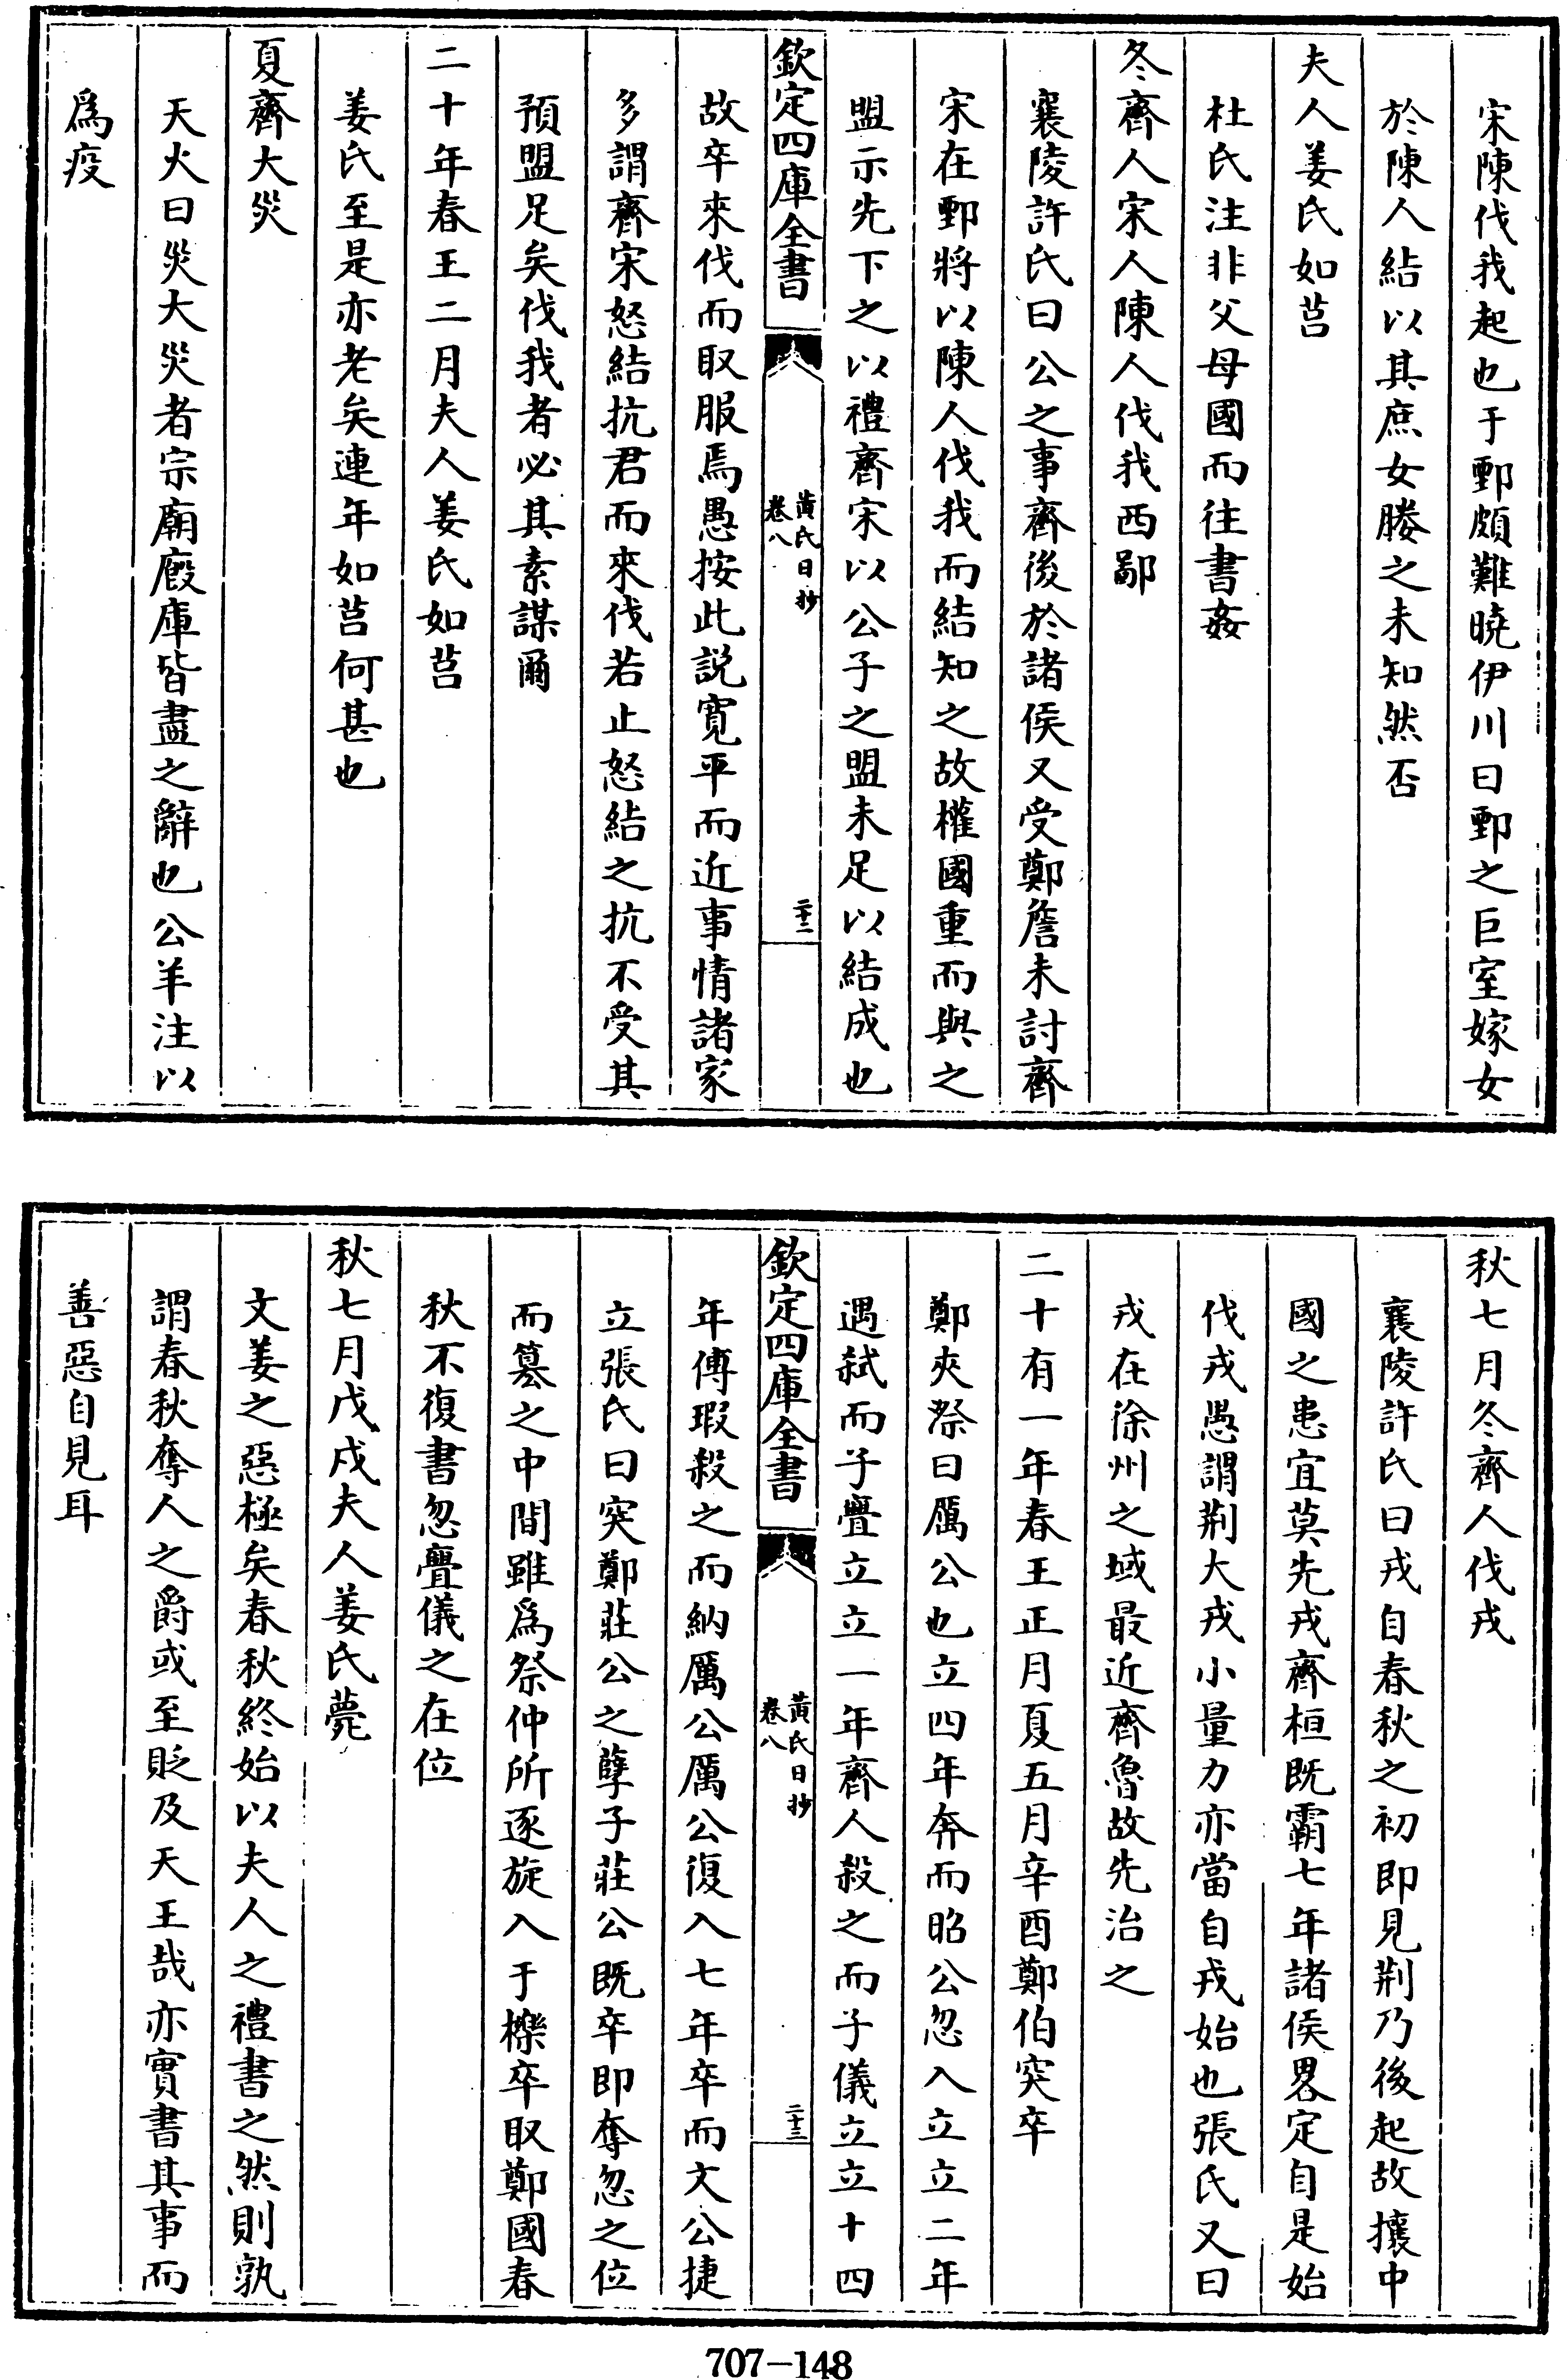 宋陳伐我起也于鄄頗難曉伊川曰鄄之巨室嫁女
於陳人結以其庶女媵之未知然否
夫人姜氏如莒
杜氏注非父母國而往書姦
冬齊人宋人陳人伐我西鄙
襄陵許氏曰公之事齊後於諸侯又受鄭詹未討齊
宋在鄄將以陳人伐我而結知之故權國重而與之
盟示先下之以禮齊宋以公子之盟未足以結成也
欽定四庫全書
黃氏日抄
卷八
二十二
故卒來伐而取服焉愚按此説寛平而近事情諸家
多謂齊宋怒結抗君而來伐若止怒結之抗不受其
預盟足矣伐我者必其素謀爾
二十年春王二月夫人姜氏如莒
姜氏至是亦老矣連年如莒何甚也
夏齊大災
天火曰災大災者宗廟廐庫皆盡之辭也公羊注以
爲疫
秋七月冬齊人伐戎
襄陵許氏曰戎自春秋之初即見荆乃後起故攘中
國之患宜莫先戎齊桓既霸七年諸侯畧定自是始
伐戎愚謂荆大戎小量力亦當自戎始也張氏又曰
戎在徐州之域最近齊魯故先治之
二十有一年春王正月夏五月辛酉鄭伯突卒
鄭夾漈曰厲公也立四年奔而昭公忽入立立二年
遇弑而子亹立立一年齊人殺之而子儀立立十四
欽定四庫全書
黃氏日抄
卷八
二十三
年傅瑕殺之而納厲公厲公復入七年卒而文公捷
立張氏曰突鄭莊公之孽子莊公既卒即奪忽之位
而簒之中間雖爲祭仲所逐旋入于櫟卒取鄭國春
秋不復書忽亹儀之在位
秋七月戊戌夫人姜氏薨
文姜之惡極矣春秋終始以夫人之禮書之然則孰
謂春秋奪人之爵或至貶及天王哉亦實書其事而
善惡自見耳
707-148